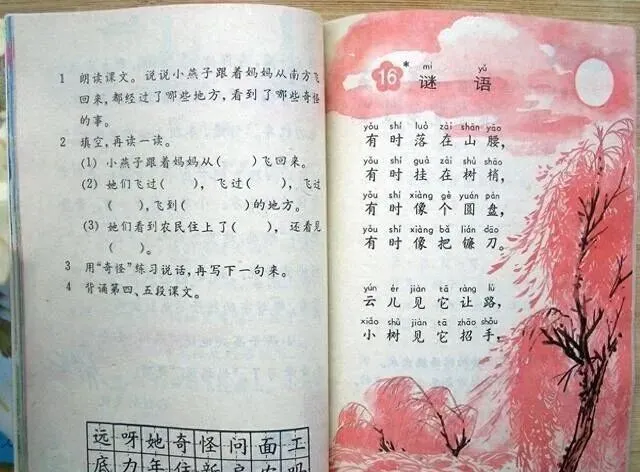 1 朗读课文。说说小燕子跟着妈妈从南方飞
回来，都经过了哪些地方，看到了哪些奇怪
的事。
2 填空，再读一读。
(1) 小燕子跟着妈妈从(　　)飞回来。
(2) 她们飞过(　　)，飞过(　　)，飞过
(　　)，飞到(　　)的地方。
(3) 她们看到农民住上了(　　)，还看见
(　　)。
3 用“奇怪”练习说话，再写下一句来。
4 背诵第四、五段课文。
远呀她奇怪问面工
底力年住新
16 *
mí yǔ
谜语
yǒu shí luò zài shān yāo
有时落在山腰，
yǒu shí guà zài shù shāo
有时挂在树梢，
yǒu shí xiàng gè yuán pán
有时像个圆盘，
yǒu shí xiàng bǎ lián dāo
有时像把镰刀。
yún ér jiàn tā ràng lù
云儿见它让路，
xiǎo shù jiàn tā zhāo shǒu
小树见它招手，